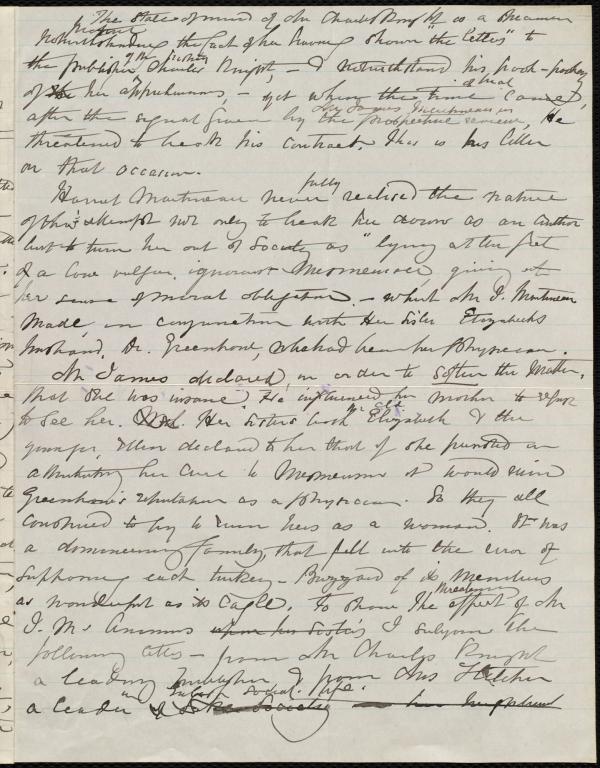 The state of mind of Mr Charles Knight as a Dreamer
Notwithstanding the fact of her having shown "the letters" to
the publisher, Charles Knight, – I withstand his
of his apprehensions, – yet when the trial came,
after the signal given by Mr James Martineau in the prospective review, He
threatened to break his contract. This is his letter
on that occasion.
Harriet Martineau never fully realised the nature
of this attempt not only to break her down as an author
but to turn her out of Society as "lying at the feet
of a low vulgar, ignorant Mesmeriser, giving up
her sense of moral obligation, – which Mr J. Martineau
made, in conjunction with Her Sister Elizabeth's
husband, Dr. Greenhow, who had been her physician.
Mr James declared, in order to soften the matter,
that she was insane. He influenced her mother to refuse
to see her. Her sisters both the elder Elizabeth & the
younger, Ellen declared to her that if she persisted in
attributing her cure to Mesmerism it would ruin
Greenhow's reputation as a physician. So they all
combined to try to ruin hers as a woman. It was
a domineering family, that fell into the error of
supposing each turkey-Buzzard of its members
as wonderful as its Eagle. To show the effect of Mr
J. M's animus upon his sister's I subjoin the
following letters – from Mr Charles Knight
a leading & from Mrs Fletcher
a leader in social life.